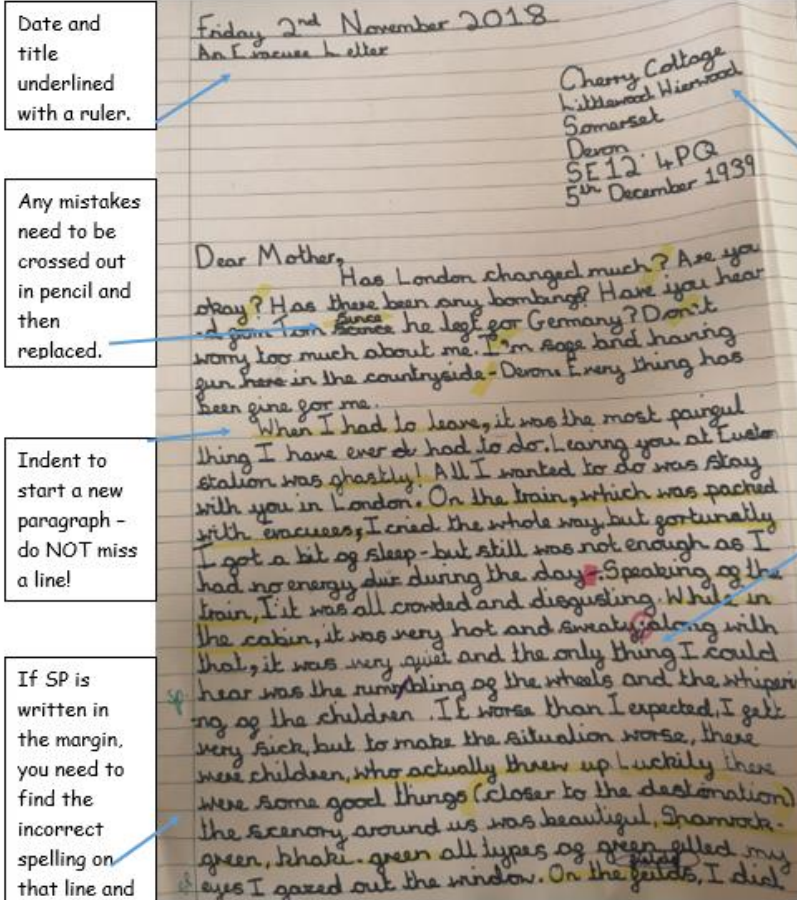 Date and
title
underlined
with a ruler.
Any mistakes
need to be
crossed out
in pencil and
then
replaced.
Indent to
start a new
paragraph –
do NOT miss
a line!
If SP is
written in
the margin,
you need to
find the
incorrect
spelling on
that line and
Friday 2nd November 2018
An Evacuee Letter
Cherry Cottage
Littlewood
Somerset
Devon
SE12 4PQ
5th December 1939
Dear Mother,
Has London changed much? Are you
okay? Has there been any bombings? Have you hear
-d from Tom since he left for Germany? Don't
worry too much about me. I'm safe and having
fun here in the countryside - Devon. Every thing has
been fine for me.
When I had to leave, it was the most painful
thing I have ever had to do. Leaving you at Euston
station was ghastly! All I wanted to do was stay
with you in London. On the train, which was packed
with evacuees, I cried the whole way but fortunatly
I got a bit of sleep - but still was not enough as I
had no energy during the day. Speaking of the
train, it was all crowded and disgusting. While in
the cabin, it was very hot and sweaty; along with
that, it was very quiet and the only thing I could
sp hear was the rumbling of the wheels and the whisperi
-ng of the children. It worse than I expected, I gett
very sick, but to make the situation worse, there
were children, who actually threw up. Luckily there
were some good things (closer to the destonation)
the scenory around us was beautiful. Shamrock-
green, khaki-green all types of green filled my
sp eyes I gazed out the window. On the feilds, I did